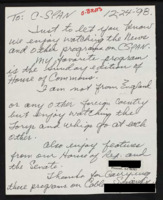 To: C-SPAN 12-24-98.
Just to let you know
we enjoy watching the News
and other programs on CSPAN.
My favorite program
is the Sunday edition of
House of Commons.
I am not from England
or any other foreign Country
but enjoy watching the
Torys and Whigs go at each
other.
Also enjoy features
from our House of Rep. and
the Senate.
Thanks for Carrying
these programs on Cable